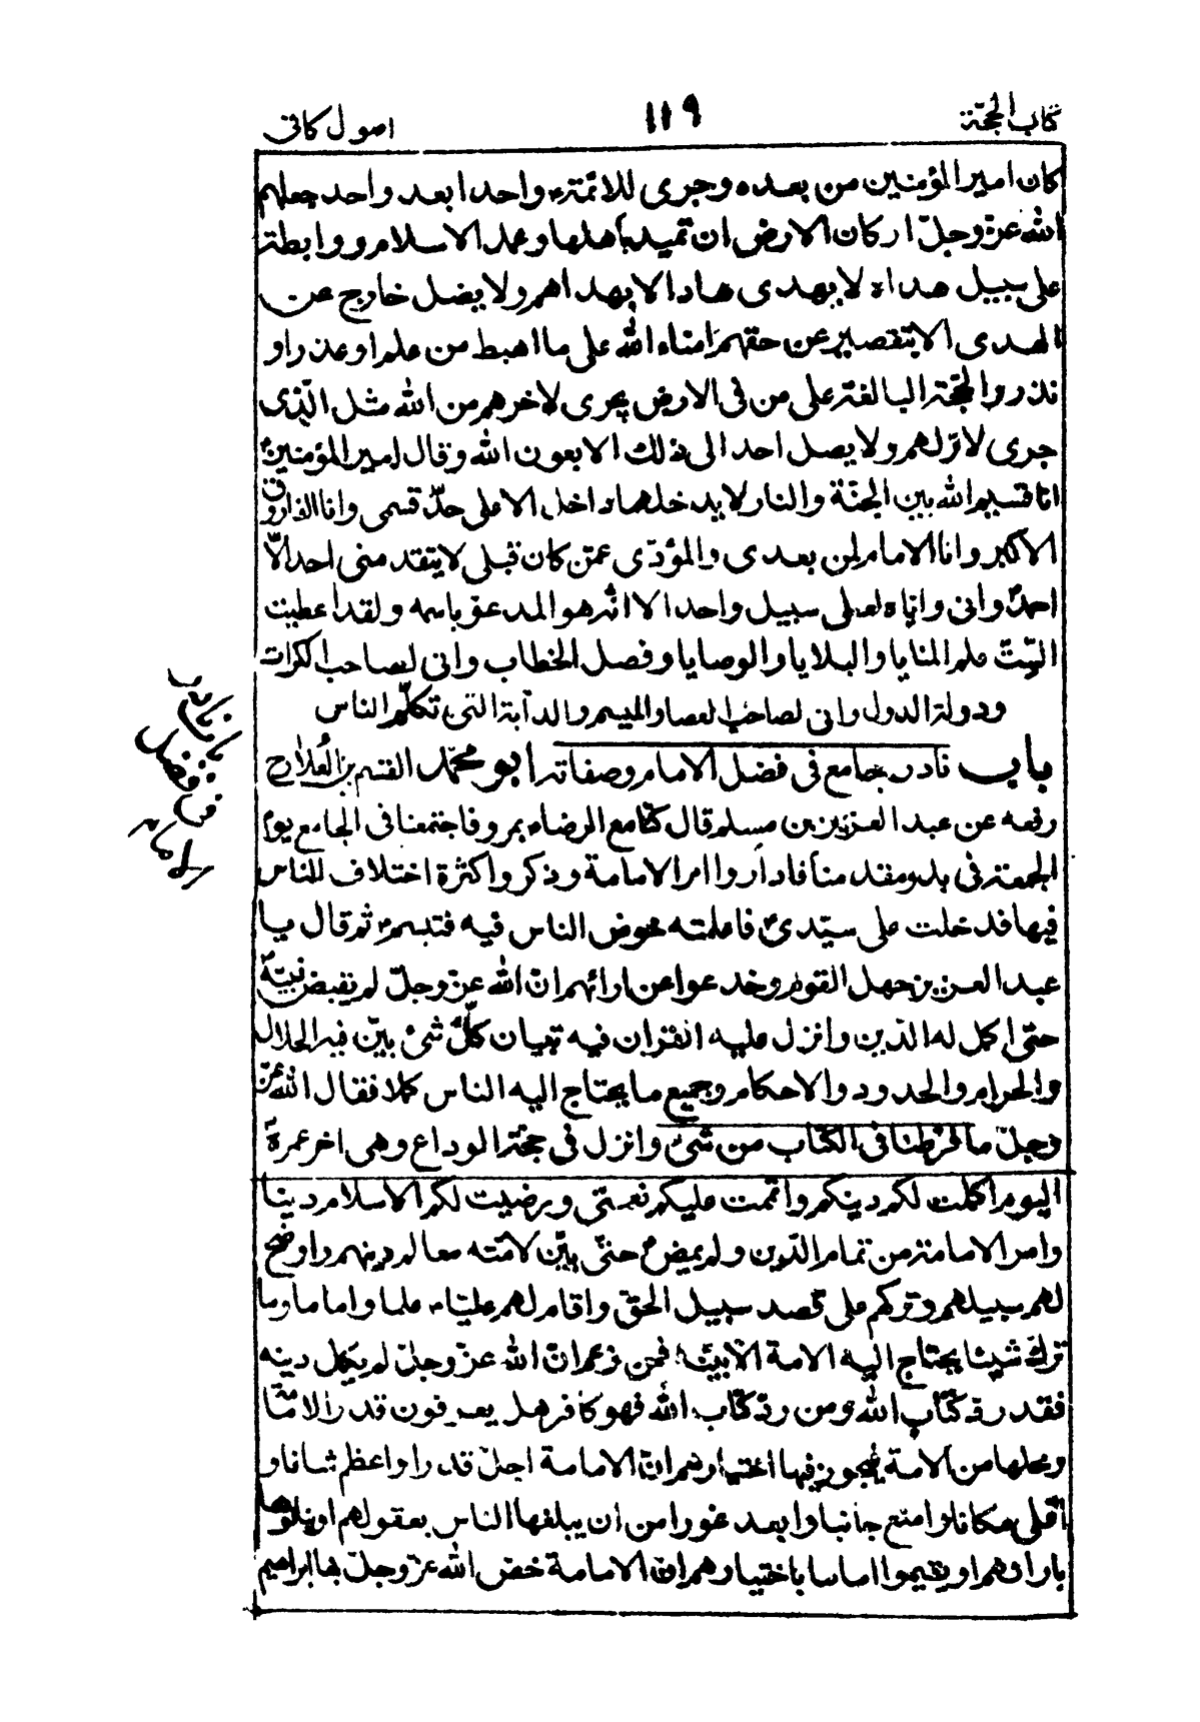 كتاب الحجة ١١٩ اصول كافى
كان امير المؤمنين من بعده وجرى للائمة واحدا بعد واحد جعلهم
الله عز وجل اركان الارض ان تميد باهلها وعمد الاسلام ورابطة
على سبيل هداه لا يهدى هاد الا بهداهم ولا يضل خارج عن
الهدى الا بتقصير عن حقهم امناء الله على ما اهبط من علم او عذر او
نذر والحجة البالغة على من فى الارض يجرى لاخرهم من الله مثل الذى
جرى لاولهم ولا يصل احد الى ذلك الا بعون الله وقال امير المؤمنين
انا قسيم الله بين الجنة والنار لا يدخلها داخل الا على حد قسمى وانا الفاروق
الاكبر وانا الامام لمن بعدى والمؤدى عمن كان قبلى لا يتقدمنى احد الا
احمد وانى واياه لعلى سبيل واحد الا انه هو المدعو باسمه ولقد اعطيت
الست علم المنايا والبلايا والوصايا وفصل الخطاب وانى لصاحب الكرات
ودولة الدول وانى لصاحب العصا والميسم والدابة التى تكلم الناس
باب نادر جامع فى فضل الامام وصفاته ابو محمد القسم بن العلاء رح
رفعه عن عبد العزيز بن مسلم قال كنا مع الرضاء بمرو فاجتمعنا فى الجامع يوم
الجمعة فى بدو مقدمنا فاداروا امر الامامة وذكروا كثرة اختلاف الناس
فيها فدخلت على سيدى فاعلمته خوض الناس فيه فتبسم ثم قال يا
عبد العزيز جهل القوم وخدعوا عن ارائهم ان الله عز وجل لم يقبض نبيه
حتى اكمل له الدين وانزل عليه القران فيه تبيان كل شئ بين فيه الحلال
والحرام والحدود والاحكام وجميع ما يحتاج اليه الناس كملا فقال الله عز
وجل ما فرطنا فى الكتاب من شئ وانزل فى حجة الوداع وهى اخر عمره
اليوم اكملت لكم دينكم واتممت عليكم نعمتى ورضيت لكم الاسلام دينا
وامر الامامة من تمام الدين ولم يمض حتى بين لامته معالم دينهم واوضح
لهم سبيلهم وتركهم على قصد سبيل الحق واقام لهم عليا علما واماما وما
ترك شيئا يحتاج اليه الامة الا بينه فمن زعم ان الله عز وجل لم يكمل دينه
فقد رد كتاب الله ومن رد كتاب الله فهو كافر هل يعرفون قدر الامامة
ومحلها من الامة فيجوز فيها اختيارهم ان الامامة اجل قدرا واعظم شانا و
اعلى مكانا وامنع جانبا وابعد غورا من ان يبلغها الناس بعقولهم او ينالوها
بارائهم او يقيموا اماما باختيارهم ان الامامة خص الله عز وجل بها ابراهيم
باب نادر
فى فضل
الامام